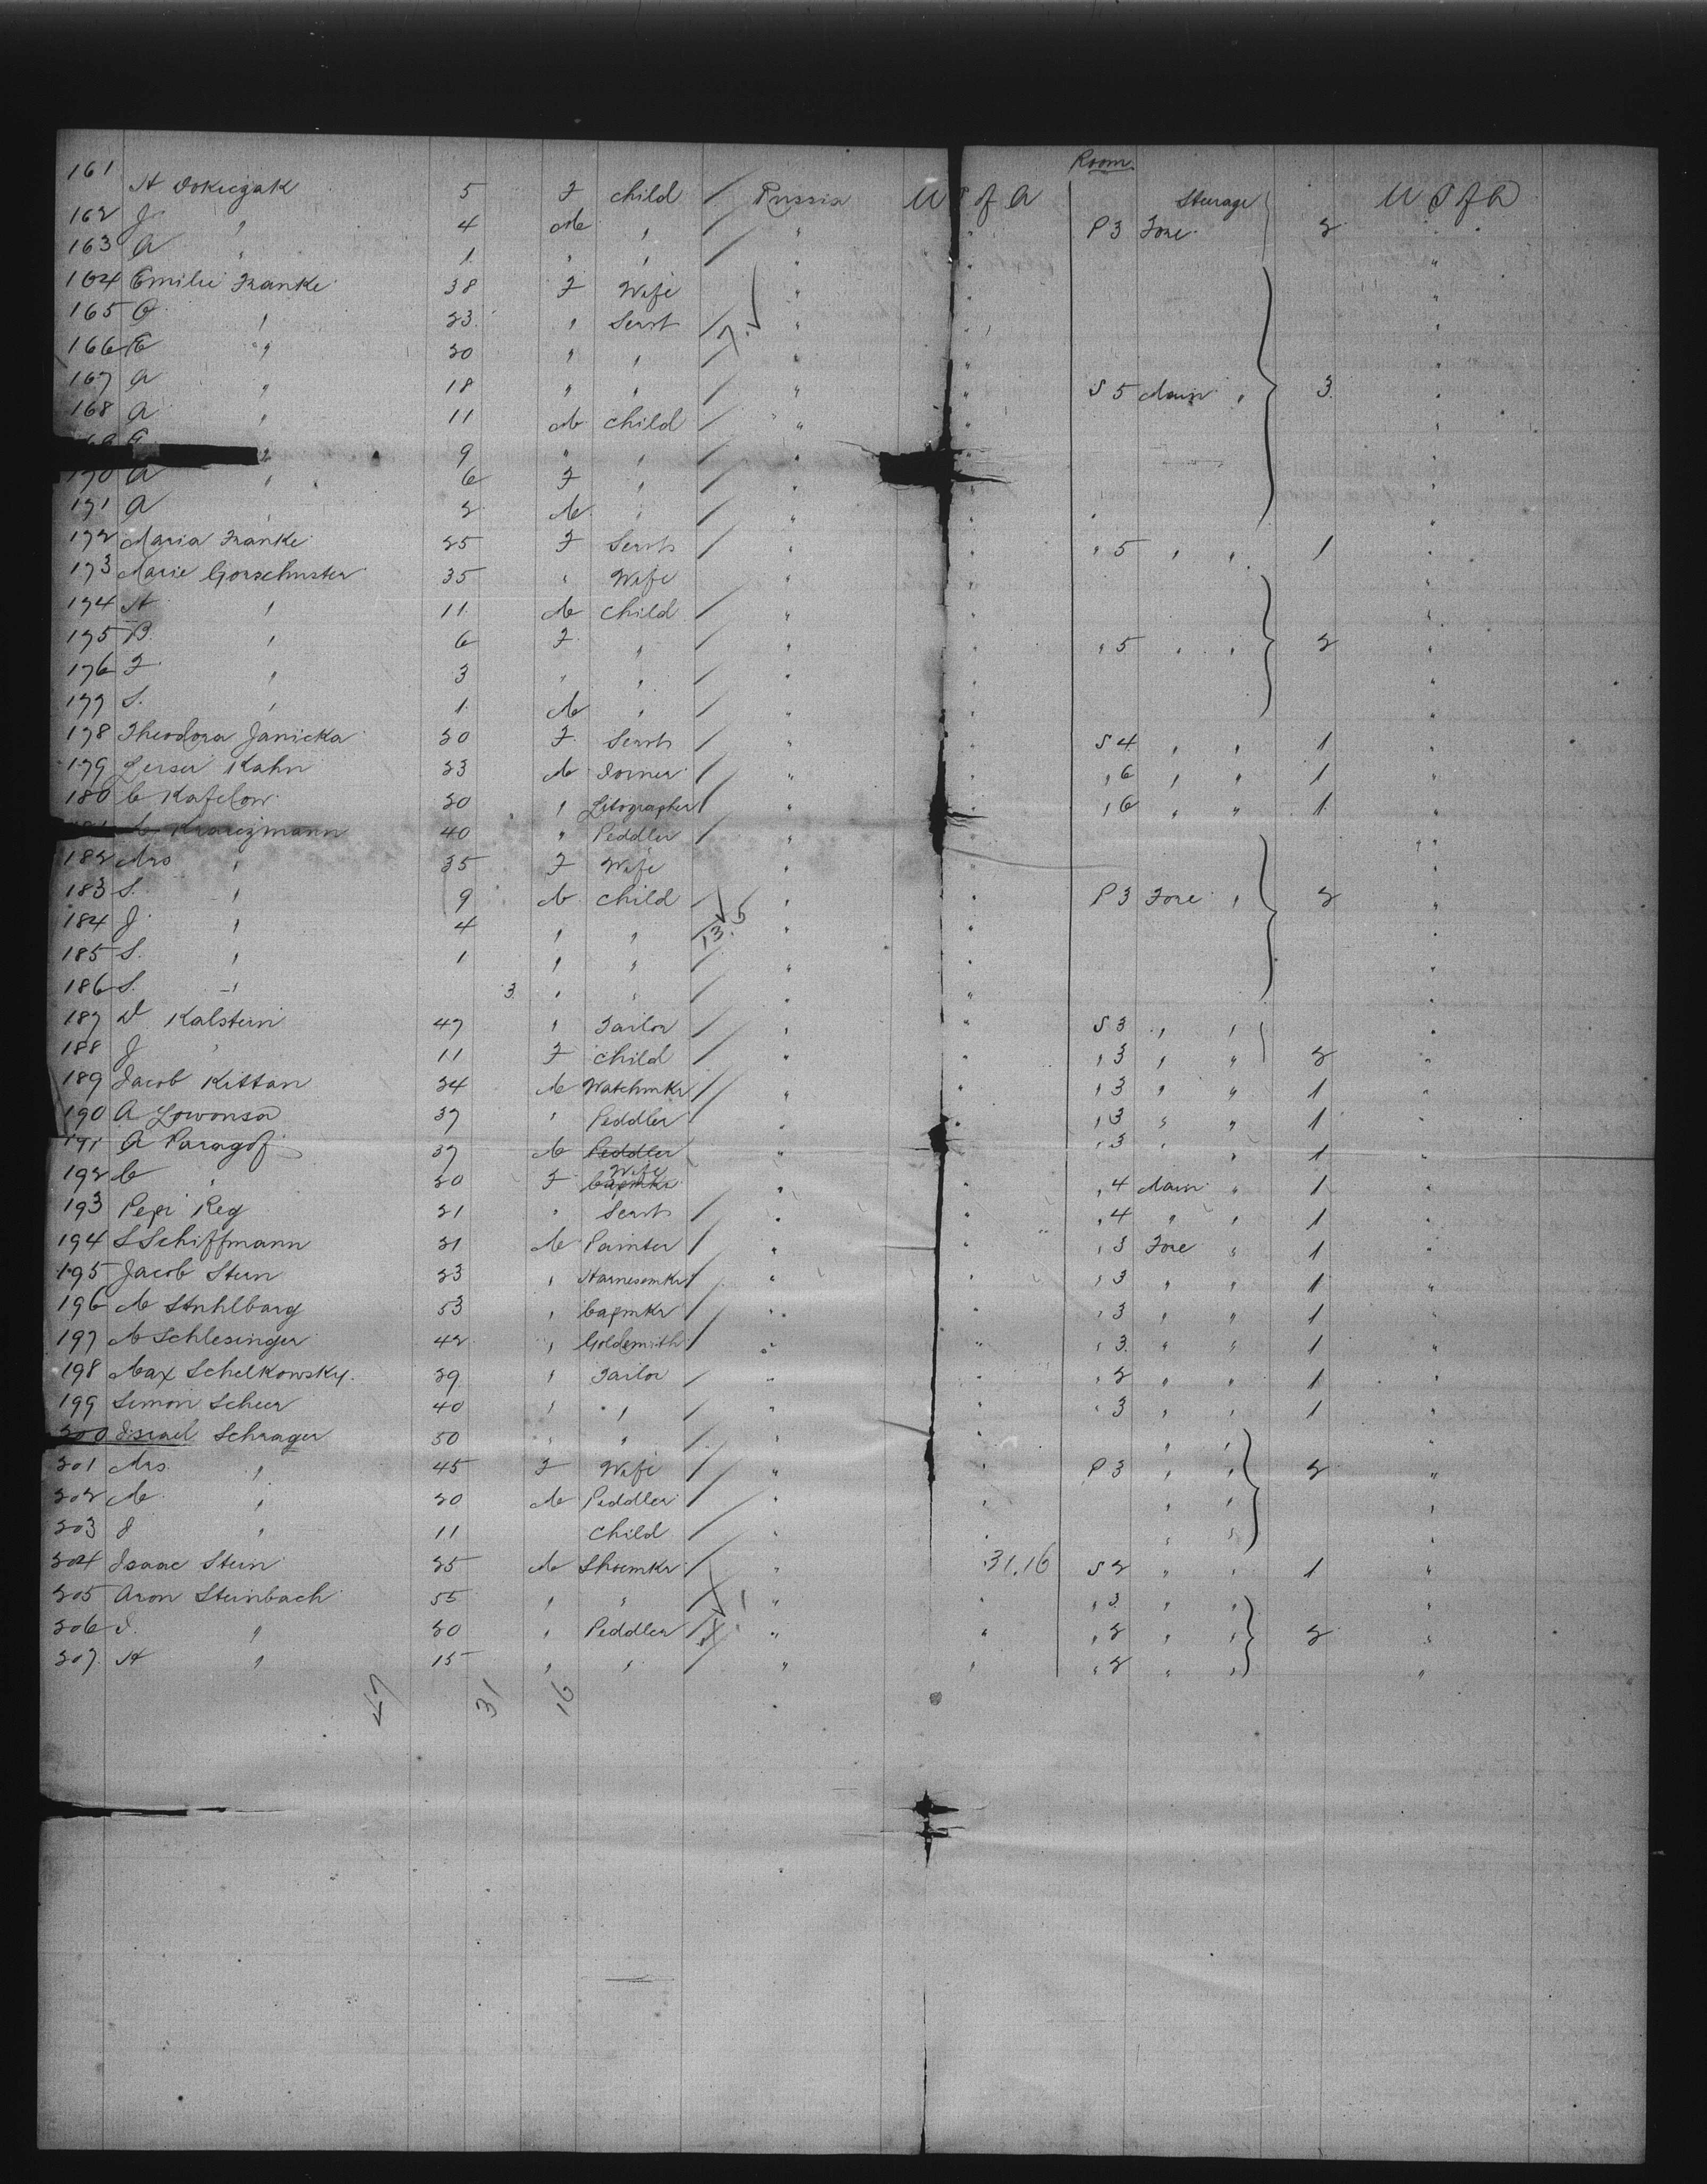 Room
161 H Dokuczak 5 F child / Russia U S of A Steerage U S of A
162 J " 4 M " / " " P 3 Fore 2 "
163 A " 1 " " / " " "
164 Emilie Franke 38 F Wife " " "
165 O " 23 " Servt / " " "
166 E " 20 " " / " " "
167 A " 18 " " / " " S 5 Main " 3 "
168 A " 11 M child / " " "
169 " 9 " " / " " "
170 A " 6 F " / " " "
171 A " 2 M " / " " "
172 Maria Franke 25 F Servt / " " " 5 " " 1 "
173 Marie Gorschuster 35 " Wife " " "
174 H " 11 M child / " " "
175 B " 6 F " / " " " 5 " " 2 "
176 F " 3 " " / " " "
177 S. " 1 M " / " " "
178 Theodora Janicka 20 F Servt / " " S 4 " " 1 "
179 Leiser Kahn 23 M / " " " 6 " " 1 "
180 C Kafelow 20 " Litographer / " " " 6 " " 1 "
M Krawczmann 40 " Peddler / " " "
182 Mrs " 35 F Wife " " "
183 S. " 9 M child / " " P 3 Fore " 2 "
184 J " 4 " " 13. " " "
185 S. " 1 " " / " "
186 S. " 3 " " / " " "
187 D Kalstein 47 " Tailor / " " S 3 " " "
188 J " 11 F child / " " " 3 " " 2 "
189 Jacob Kittan 24 M Watchmkr / " " " 3 " " 1 "
190 A Lowonsa 37 " Peddler / " " " 3 " " 1 "
191 A Paragof 37 M Peddler " " " 3 " " 1 "
192 C " 20 F Capmkr Wife " " " 4 Main " 1 "
193 Pepi Reg 21 " Servt / " " " 4 " " 1 "
194 S Schiffmann 21 M Painter / " " " 3 Fore " 1 "
195 Jacob Stein 23 " Harnesomkr / " " " 3 " " 1 "
196 M Stuhlbarg 53 " Capmkr / " " " 3 " " 1 "
197 M Schlesinger 42 " Goldsmith / " " " 3 " " 1 "
198 Max Schelkowsky 29 " Tailor / " " " 2 " " 1 "
199 Simon Scheer 40 " " / " " " 3 " " 1 "
200 Israel Schrager 50 " " / " " " " "
201 Mrs " 45 F Wife / " " P 3 " " 2 "
202 M " 20 M Peddler / " " " " "
203 J " 11 child / " " " " "
204 Isaac Stein 25 M Shoemkr / " 31.16 S 2 " " 1 "
205 Aron Steinbach 55 " " / " " " 3 " " "
206 I. " 20 " Peddler / " " " 2 " " 2 "
207 H " 15 " " / " " " 2 " " "
47 31 16